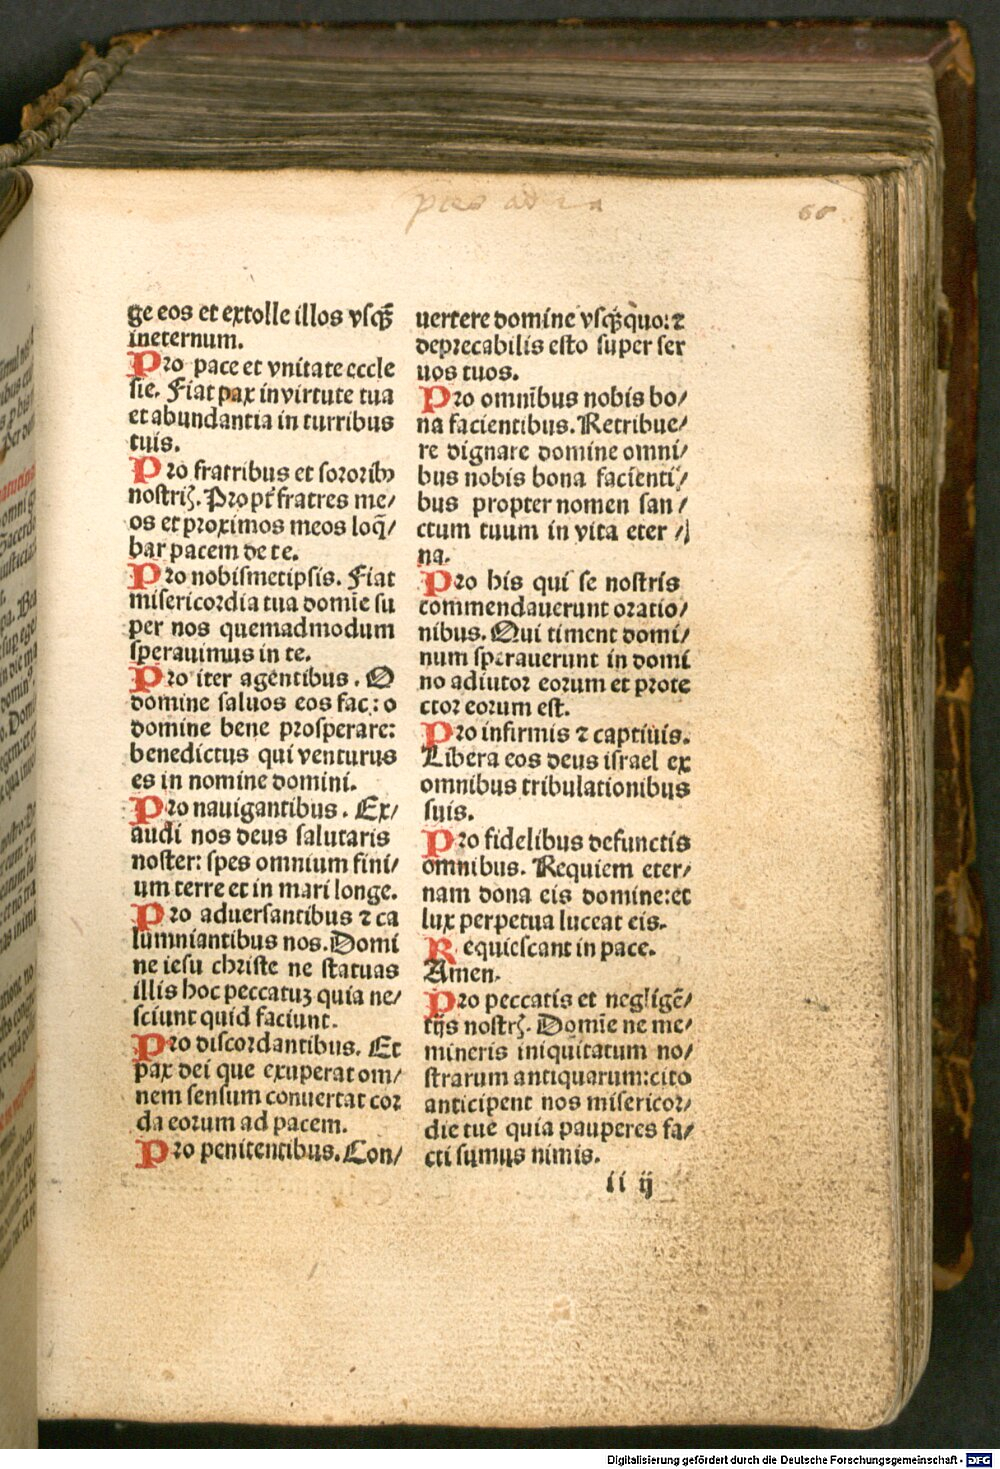 60
ge eos et extolle illos vsqꝫ
ineternum.
Pro pace et vnitate eccle
sie. Fiat pax in virtute tua
et abundantia in turribus
tuis.
Pro fratribus et sororibꝰ
nostrꝭ. Propt̄ fratres me/
os et proximos meos loq̄/
bar pacem de te.
Pro nobismetipsis. Fiat
misericordia tua domīe su
per nos quemadmodum
sperauimus in te.
Pro iter agentibus. O
domine saluos eos fac: o
domine bene prosperare:
benedictus qui venturus
es in nomine domini.
Pro nauigantibus. Ex/
audi nos deus salutaris
noster: spes omnium fini/
um terre et in mari longe.
Pro aduersantibus ⁊ ca
lumniantibus nos. Domi
ne iesu christe ne statuas
illis hoc peccatuꝫ quia ne/
sciunt quid faciunt.
Pro discordantibus. Et
pax dei que exuperat om/
nem sensum conuertat cor
da eorum ad pacem.
Pro penitentibus. Con/
uertere domine vsqꝫquo: ⁊
deprecabilis esto super ser
uos tuos.
Pro omnībus nobis bo/
na facientibus. Retribue/
re dignare domine omni/
bus nobis bona facienti/
bus propter nomen san/
ctum tuum in vita eter/
na.
Pro his qui se nostris
commendauerunt oratio/
nibus. Qui timent domi/
num sperauerunt in domi
no adiutor eorum et prote
ctor eorum est.
Pro infirmis ⁊ captiuis.
Libera eos deus israel ex
omnibus tribulationibus
suis.
Pro fidelibus defunctis
omnibus. Requiem eter/
nam dona eis domine: et
lux perpetua luceat eis.
Requiescant in pace.
Amen.
Pro peccatis et negligē/
tijs nostrꝭ. Domīe ne me/
mineris iniquitatum no/
strarum antiquarum: cito
anticipent nos misericor/
die tue quia pauperes fa/
cti sumus nimis.
ii ij
Digitalisierung gefördert durch die Deutsche Forschungsgemeinschaft - DFG